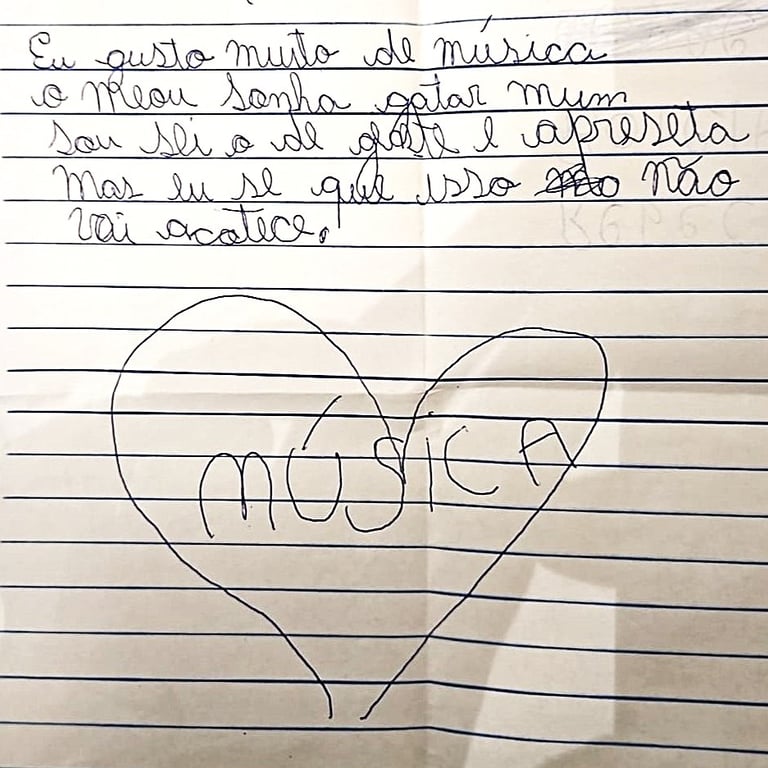 Eu gusto muito de música
o meou sonha gatar mum
sou sei o de gloste e apreseta
mas eu se que isso não
vai acotece.
MÚSICA